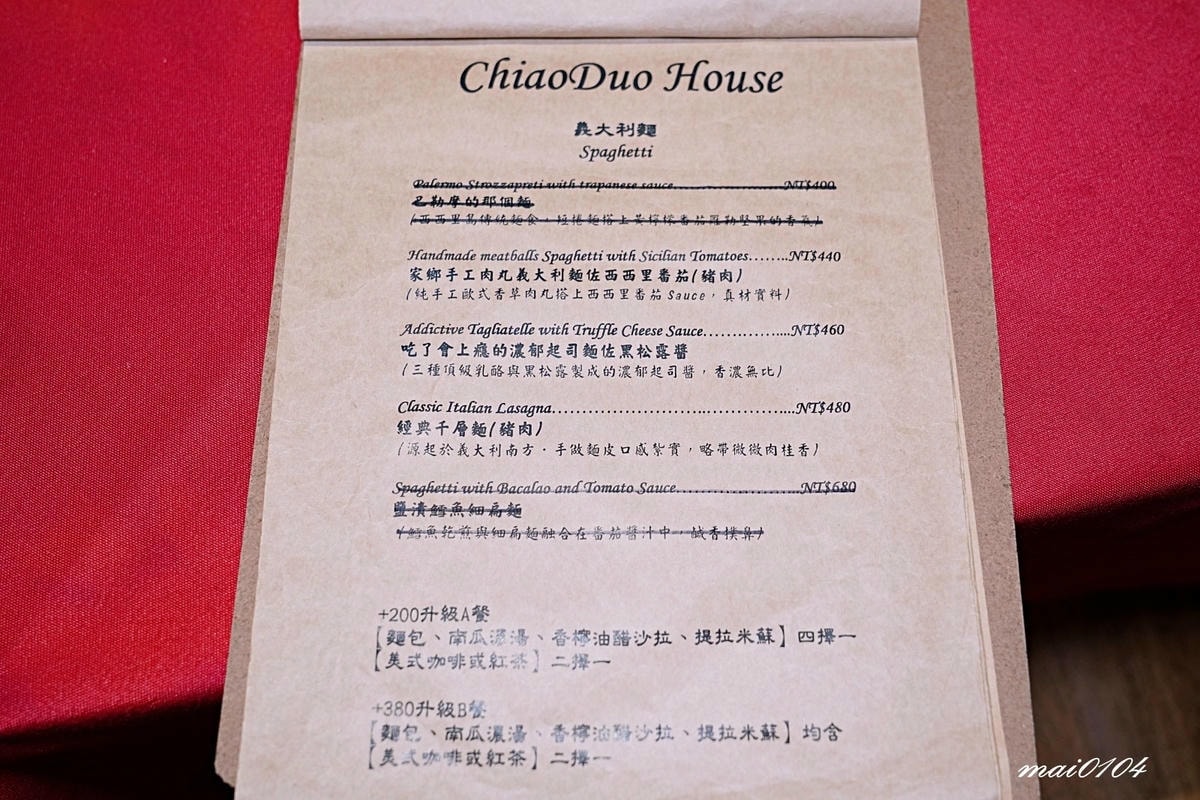 ChiaoDuo House
義大利麵
Spaghetti
Palermo Strozzapreti with trapanese sauce……………………NT$400
巴勒摩的那個麵
(西西里島傳統麵食，短捲麵搭上黃檸檬番茄羅勒堅果的香氣)
Handmade meatballs Spaghetti with Sicilian Tomatoes……..NT$440
家鄉手工肉丸義大利麵佐西西里番茄(豬肉)
(純手工歐式香草肉丸搭上西西里番茄Sauce，真材實料)
Addictive Tagliatelle with Truffle Cheese Sauce…………....NT$460
吃了會上癮的濃郁起司麵佐黑松露醬
(三種頂級乳酪與黑松露製成的濃郁起司醬，香濃無比)
Classic Italian Lasagna…………………..…………...NT$480
經典千層麵(豬肉)
(源起於義大利南方．手做麵皮口感紮實，略帶微微肉桂香)
Spaghetti with Bacalao and Tomato Sauce…………………...NT$680
鹽漬鱈魚細扁麵
(鱈魚乾煎與細扁麵融合在番茄醬汁中，鹹香撲鼻)
+200升級A餐
【麵包、南瓜濃湯、香檸油醋沙拉、提拉米蘇】四擇一
【美式咖啡或紅茶】二擇一
+380升級B餐
【麵包、南瓜濃湯、香檸油醋沙拉、提拉米蘇】均含
【美式咖啡或紅茶】二擇一
mai0104